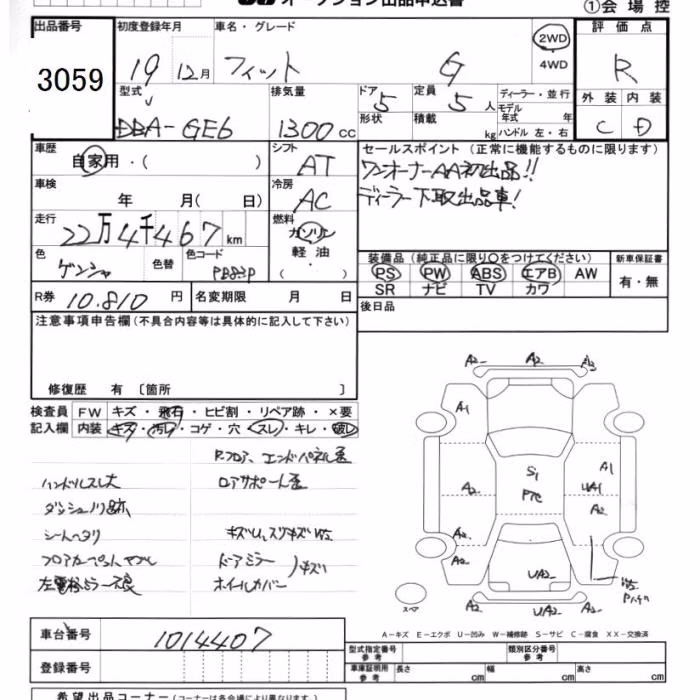 オークション出品申込書
①会場控
出品番号 初度登録年月 車名・グレード 評価点
3059 19 12月 フィット G 2WD 4WD R
型式 排気量 ドア 5 定員 5人 ディーラー・並行
モデル年式 年
形状 積載 kg ハンドル 左・右
外装 内装
DBA-GE6 1300cc C D
車歴 シフト セールスポイント (正常に機能するものに限ります)
自家用・( ) AT ワンオーナーAA初出品!!
車検 冷房 ディーラー下取出品車!
年 月( 日) AC
走行 燃料
22万4千467km ガソリン
軽油
・( )
色 色替 色コード
ゲンシャ PB83P
装備品 (純正品に限り○をつけてください) 新車保証書
PS PW ABS エアB AW 有・無
SR ナビ TV カワ
R券 10.810円 名変期限 月 日 後日品
注意事項申告欄 (不具合内容等は具体的に記入して下さい)
修復歴 有 〔箇所 〕
検査員 FW キズ・飛石・ヒビ割・リペア跡・×要
記入欄 内装 キズ・汚レ・コゲ・穴・スレ・キレ・破レ
Rフロア、エンドパネル歪
ハンドルスレ大 ロアサポート歪
ダッシュノリ跡
シートヘタリ
フロアカーペット
ドアミラー キズ
左電格ミラー不良 ホイルカバー
A2 A2 A2
A1
S1 A1
A2 UA1
A2
A2 A2
A2
UA2
A2 UA2 A2
スペア
A-キズ E-エクボ U-凹み W-補修跡 S-サビ C-腐食 XX-交換済
車台番号 1014407
登録番号
型式指定番号 参考 類別区分番号 参考
車庫証明用 参考 長さ cm 幅 cm 高さ cm
希望出品コーナー (コーナーは各会場により異なります。)